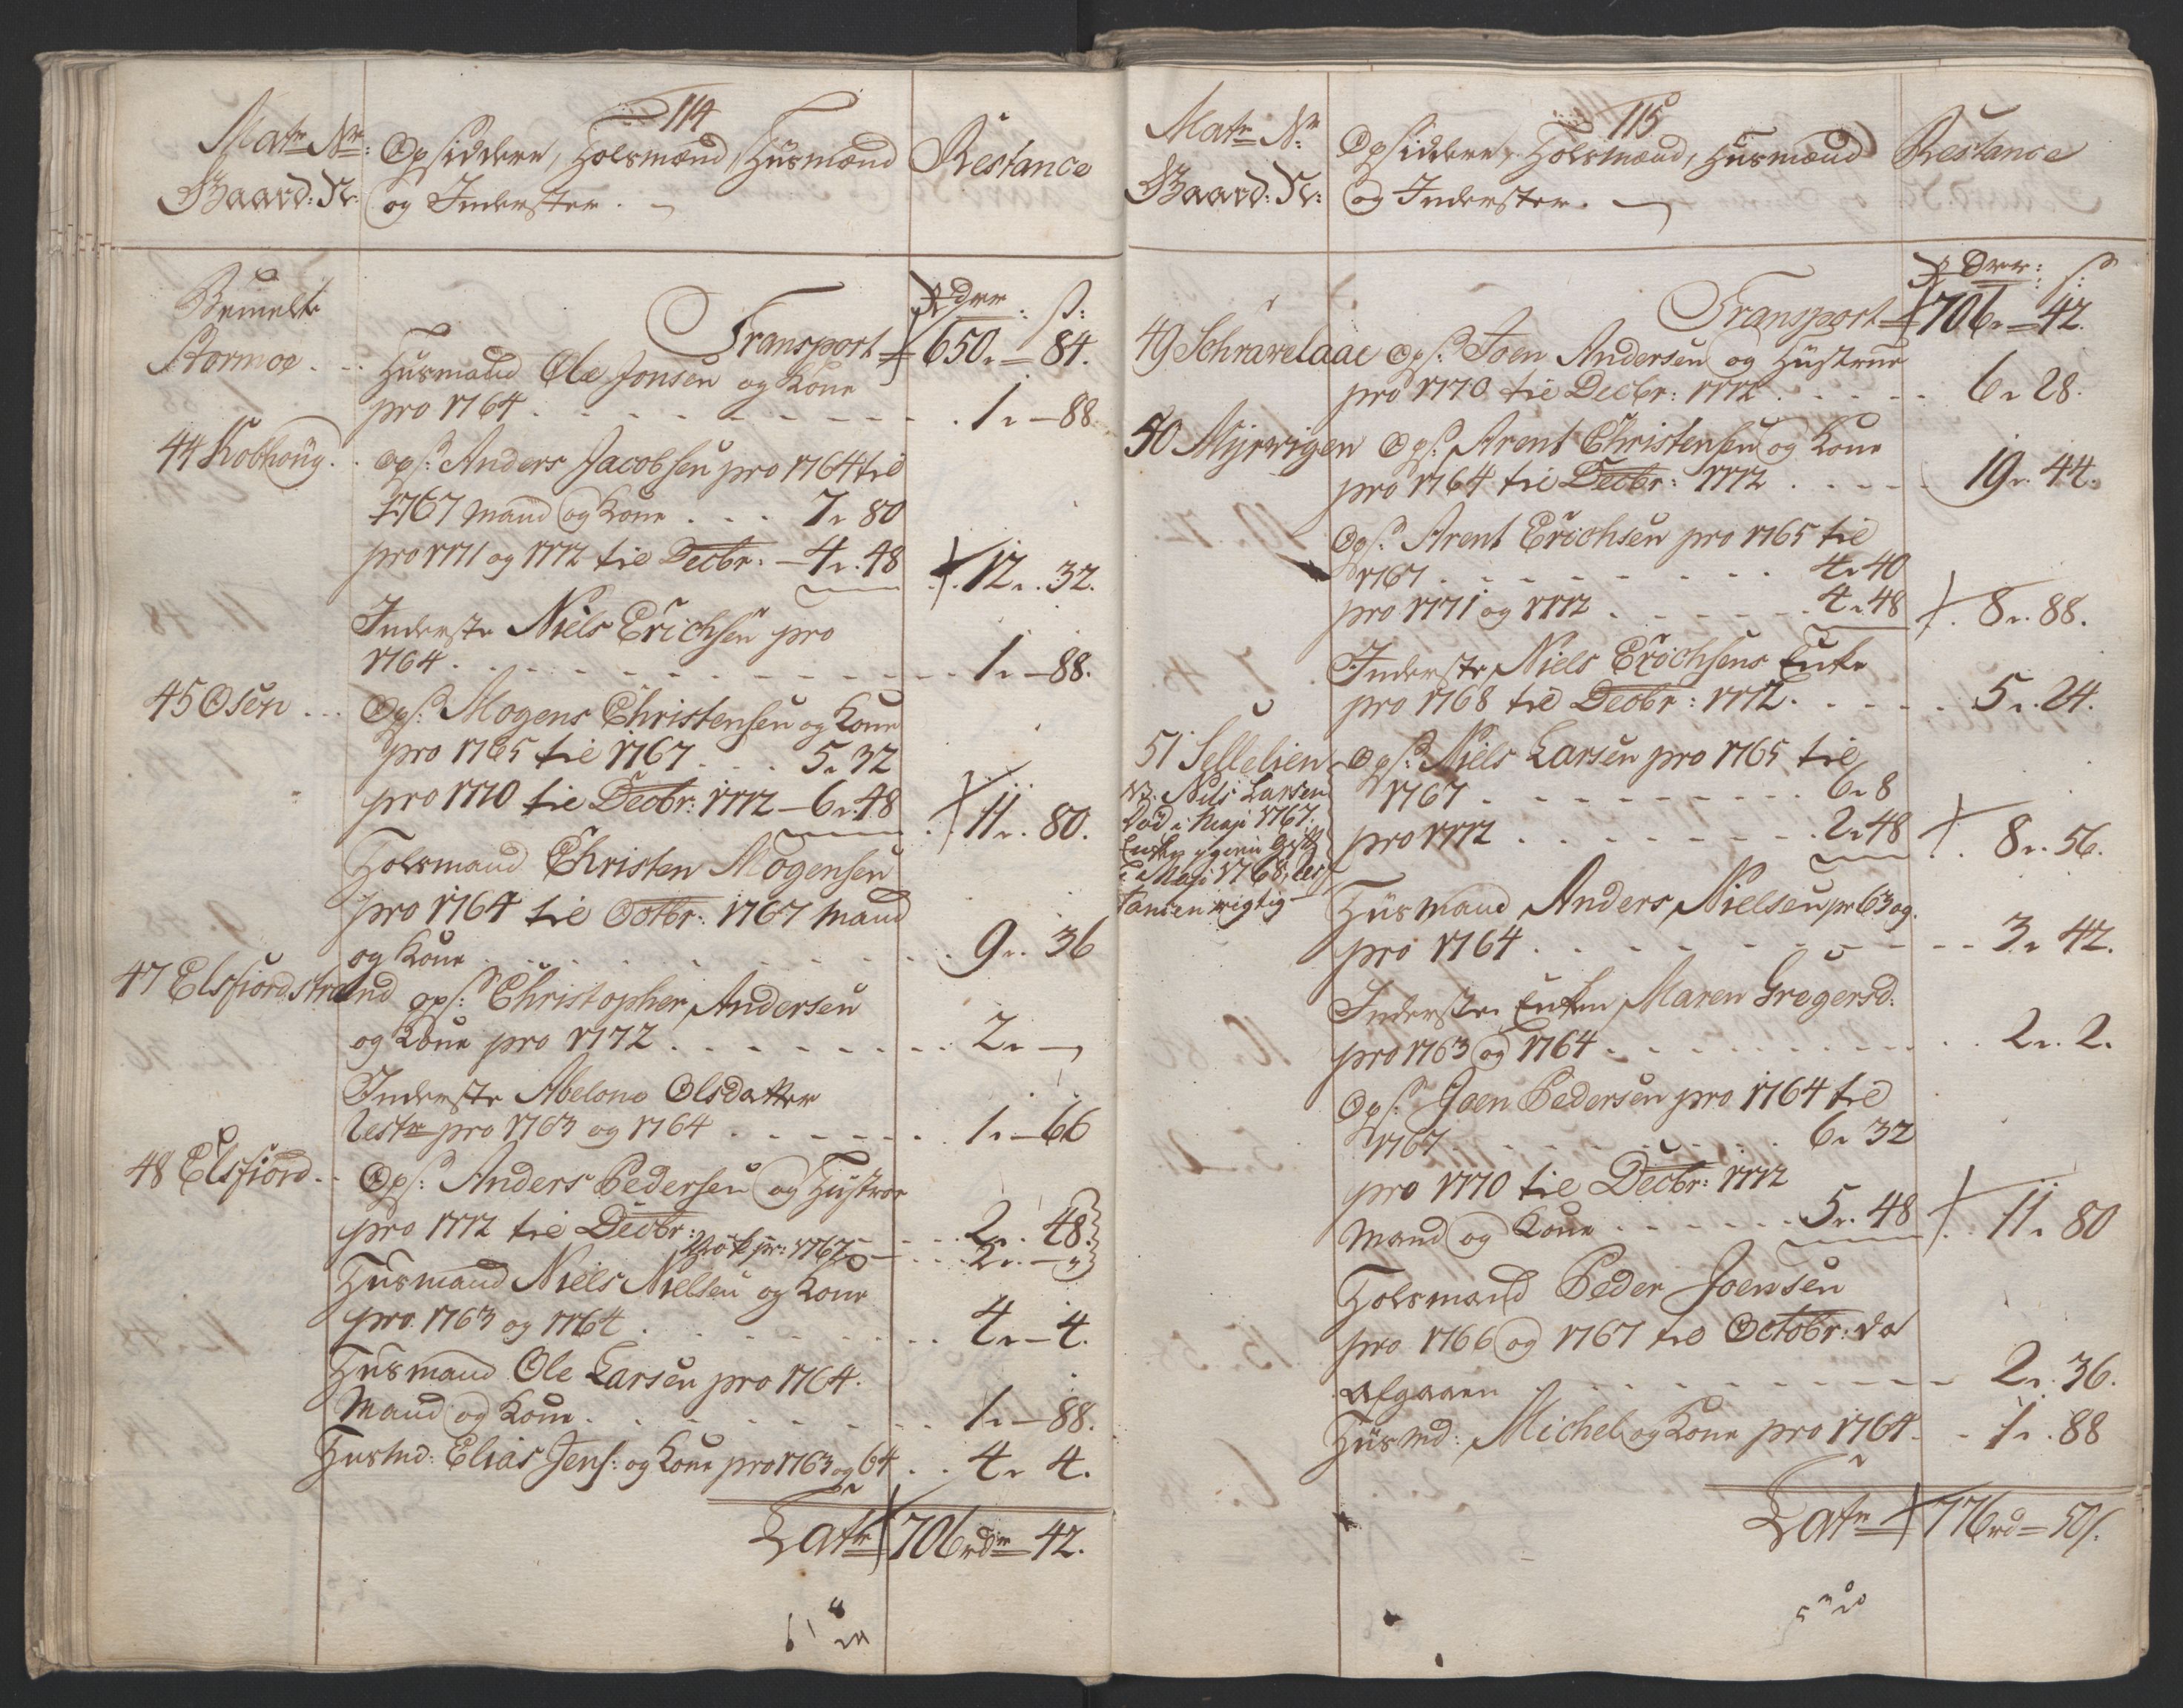 114
Matr Nr:
Gaard: N:
Opsiddere, Folsmænd, Huusmænd
og Inderster.
Restance
Rdrr: s:
Bemelte
Transport 650 „ 84.
Stormoe
Huusmand Ole Jonsen og Kone
pro 1764 1 „ 88.
44 Kobhoug
Ops: Anders Jacobsen pro 1764 til
1767 Mand og Kone 7 „ 80
pro 1771 og 1772 til Decbr: 4 „ 48 12 „ 32.
Inderste Niels Erichsen pro
1764 1 „ 88.
45 Osen
Ops: Mogens Christensen og Kone
pro 1765 til 1767 5 „ 32
pro 1770 til Decbr: 1772 6 „ 48 11 „ 80.
Folsmand Christen Mogensen
pro 1764 til Octbr: 1767 Mand
og Kone 9 „ 36
47 Elsfiordstrand ops: Christopher Andersen
og Kone pro 1772 2 „
Inderste Abelone Olsdatter
Restr pro 1763 og 1764 1 „ 66
48 Elsfiord
Ops: Anders Pedersen og Hustroe
pro 1772 til Decbr: 2 „ 48.
pr: 1767 2 „
Huusmand Niels Nielsen og Kone
pro 1763 og 1764 4 „ 4.
Huusmand Ole Larsen pro 1764.
Mand og Kone 1 „ 88.
Husmd: Elias Jens: og Kone pro 1763 og 64 4 „ 4.
Latr 706 rdr 42.
115
Matr Nr:
Gaard: N:
Opsiddere, Folsmænd, Husmænd
og Inderster.
Restance
Rdrr: s:
Transport 706 „ 42.
49 Schravelaae Ops: Joen Andersen og Hustrue
pro 1770 til Decbr: 1772 6 „ 28.
50 Myrvigen Ops: Arent Christensen og Kone
pro 1764 til Decbr: 1772 19 „ 44.
Ops: Arent Erichsen pro 1765 til
1767 4 „ 40
pro 1771 og 1772 4 „ 48 8 „ 88.
Inderste Niels Erichsens Enke
pro 1768 til Decbr: 1772 5 „ 24.
51 Sellelien
Ops: Niels Larsen pro 1765 til
1767 6 „ 8
NB. Nils Larsen
Død i Maji 1767.
Enken igien gift
i Maji 1768, Res
tancen rigtig
pro 1772 2 „ 48 8 „ 56.
Huusmand Anders Nielsen pr 63 og
pro 1764 3 „ 42.
Inderste Enken Maren Gregersd:
pro 1763 og 1764 2 „ 2.
Ops: Joen Pedersen pro 1764 til
1767 6 „ 32
pro 1770 til Decbr: 1772
Mand og Kone 5 „ 48 11 „ 80
Folsmand Peder Joensen
pro 1766 og 1767 til Octobr: da
afgaaen 2 „ 36.
Huusmd: Michel og Kone pro 1764 1 „ 88
Latr 776 rd 50 s.